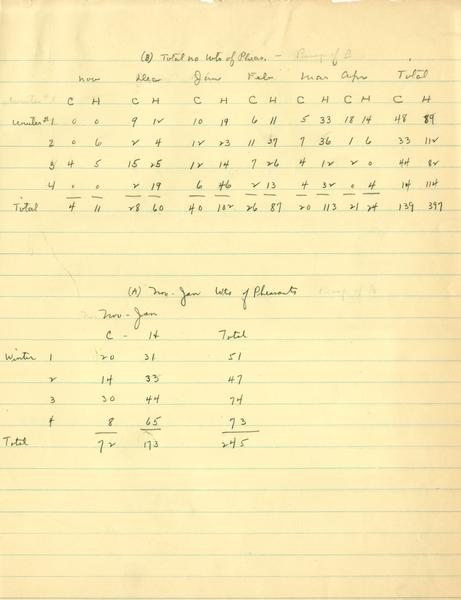 (B) Total no Wts of Pheas. -
Nov Dec Jan Feb Mar Apr Total
C H C H C H C H C H C H C H
Winter #1 0 0 9 12 10 19 6 11 5 33 18 14 48 89
2 0 6 2 4 12 23 11 37 7 36 1 6 33 112
3 4 5 15 25 12 14 7 26 4 12 2 0 44 82
4 0 0 2 19 6 46 2 13 4 32 0 4 14 114
Total 4 11 28 60 40 102 26 87 20 113 21 24 139 397
(A) Nov - Jan Wts of Pheasants
Nov - Jan
C - H Total
Winter 1 20 31 51
2 14 33 47
3 30 44 74
4 8 65 73
Total 72 173 245